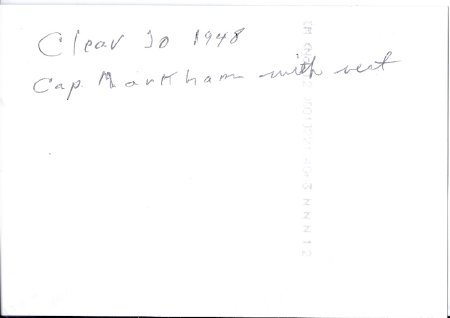 Clear Jo 1948
Cap Markham with vest